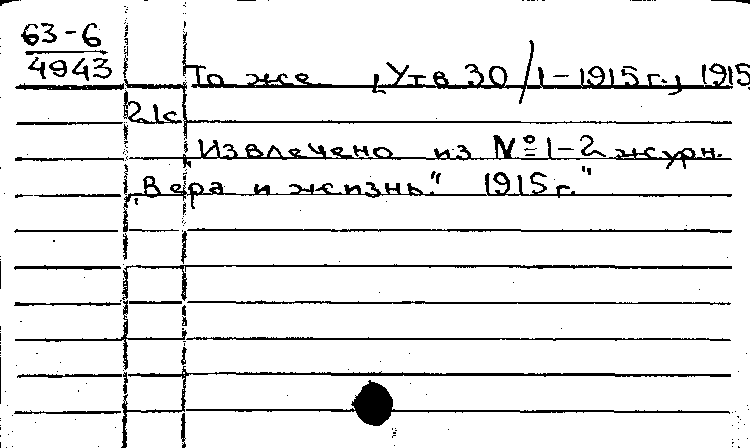 63-6
4943
То же [Утв 30/I-1915г.] 1915
21с
„Извлечено из №1-2 журн.
„Вера и жизнь." 1915г."